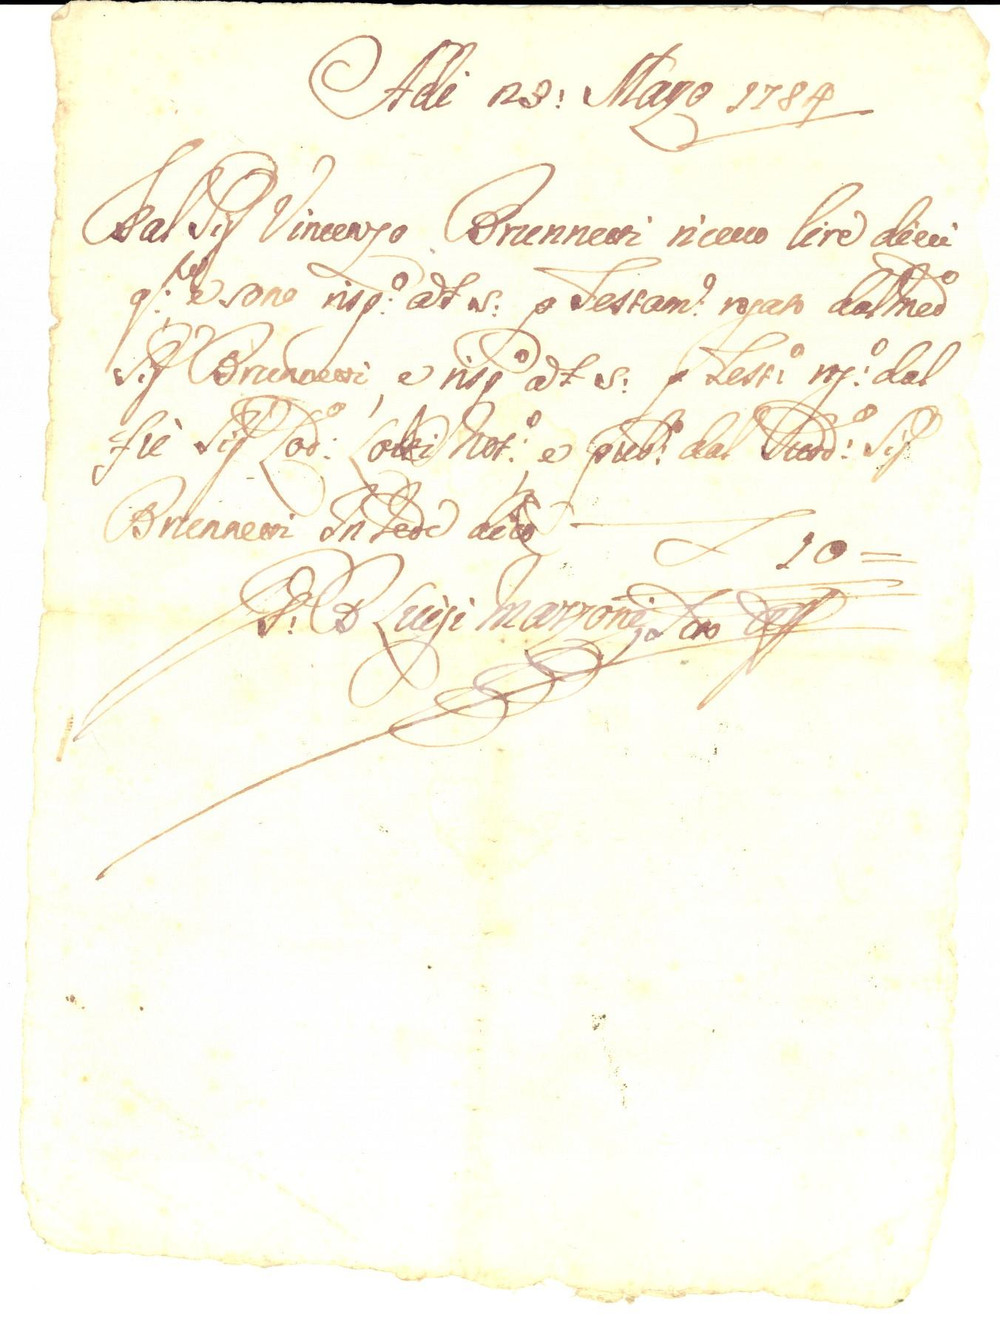 Adi 28: Mago 1784
Dal Sig Vincenzo Brunnetti riceuo lire dieci
e sono risp.o ad : p Testam.o rogato dal med.o
Sig Brunnetti, e risp.o ad : p Test.o rog.o dal
fù Sig Lod.o Not.o e pub.o dal sud.o Sig
Brunnetti In fede dico £ 10=
D. Luigi Mazzoni